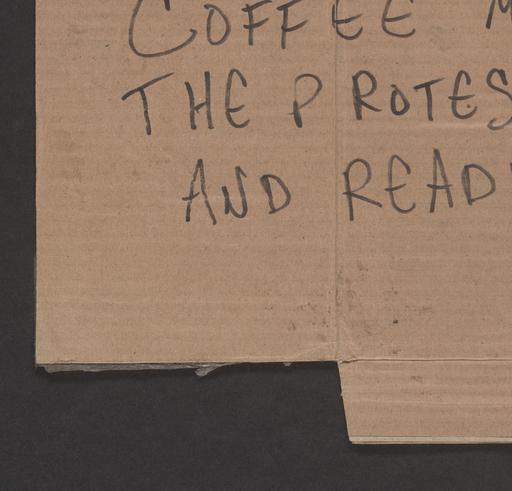 COFFEE M
THE PROTES
AND READ